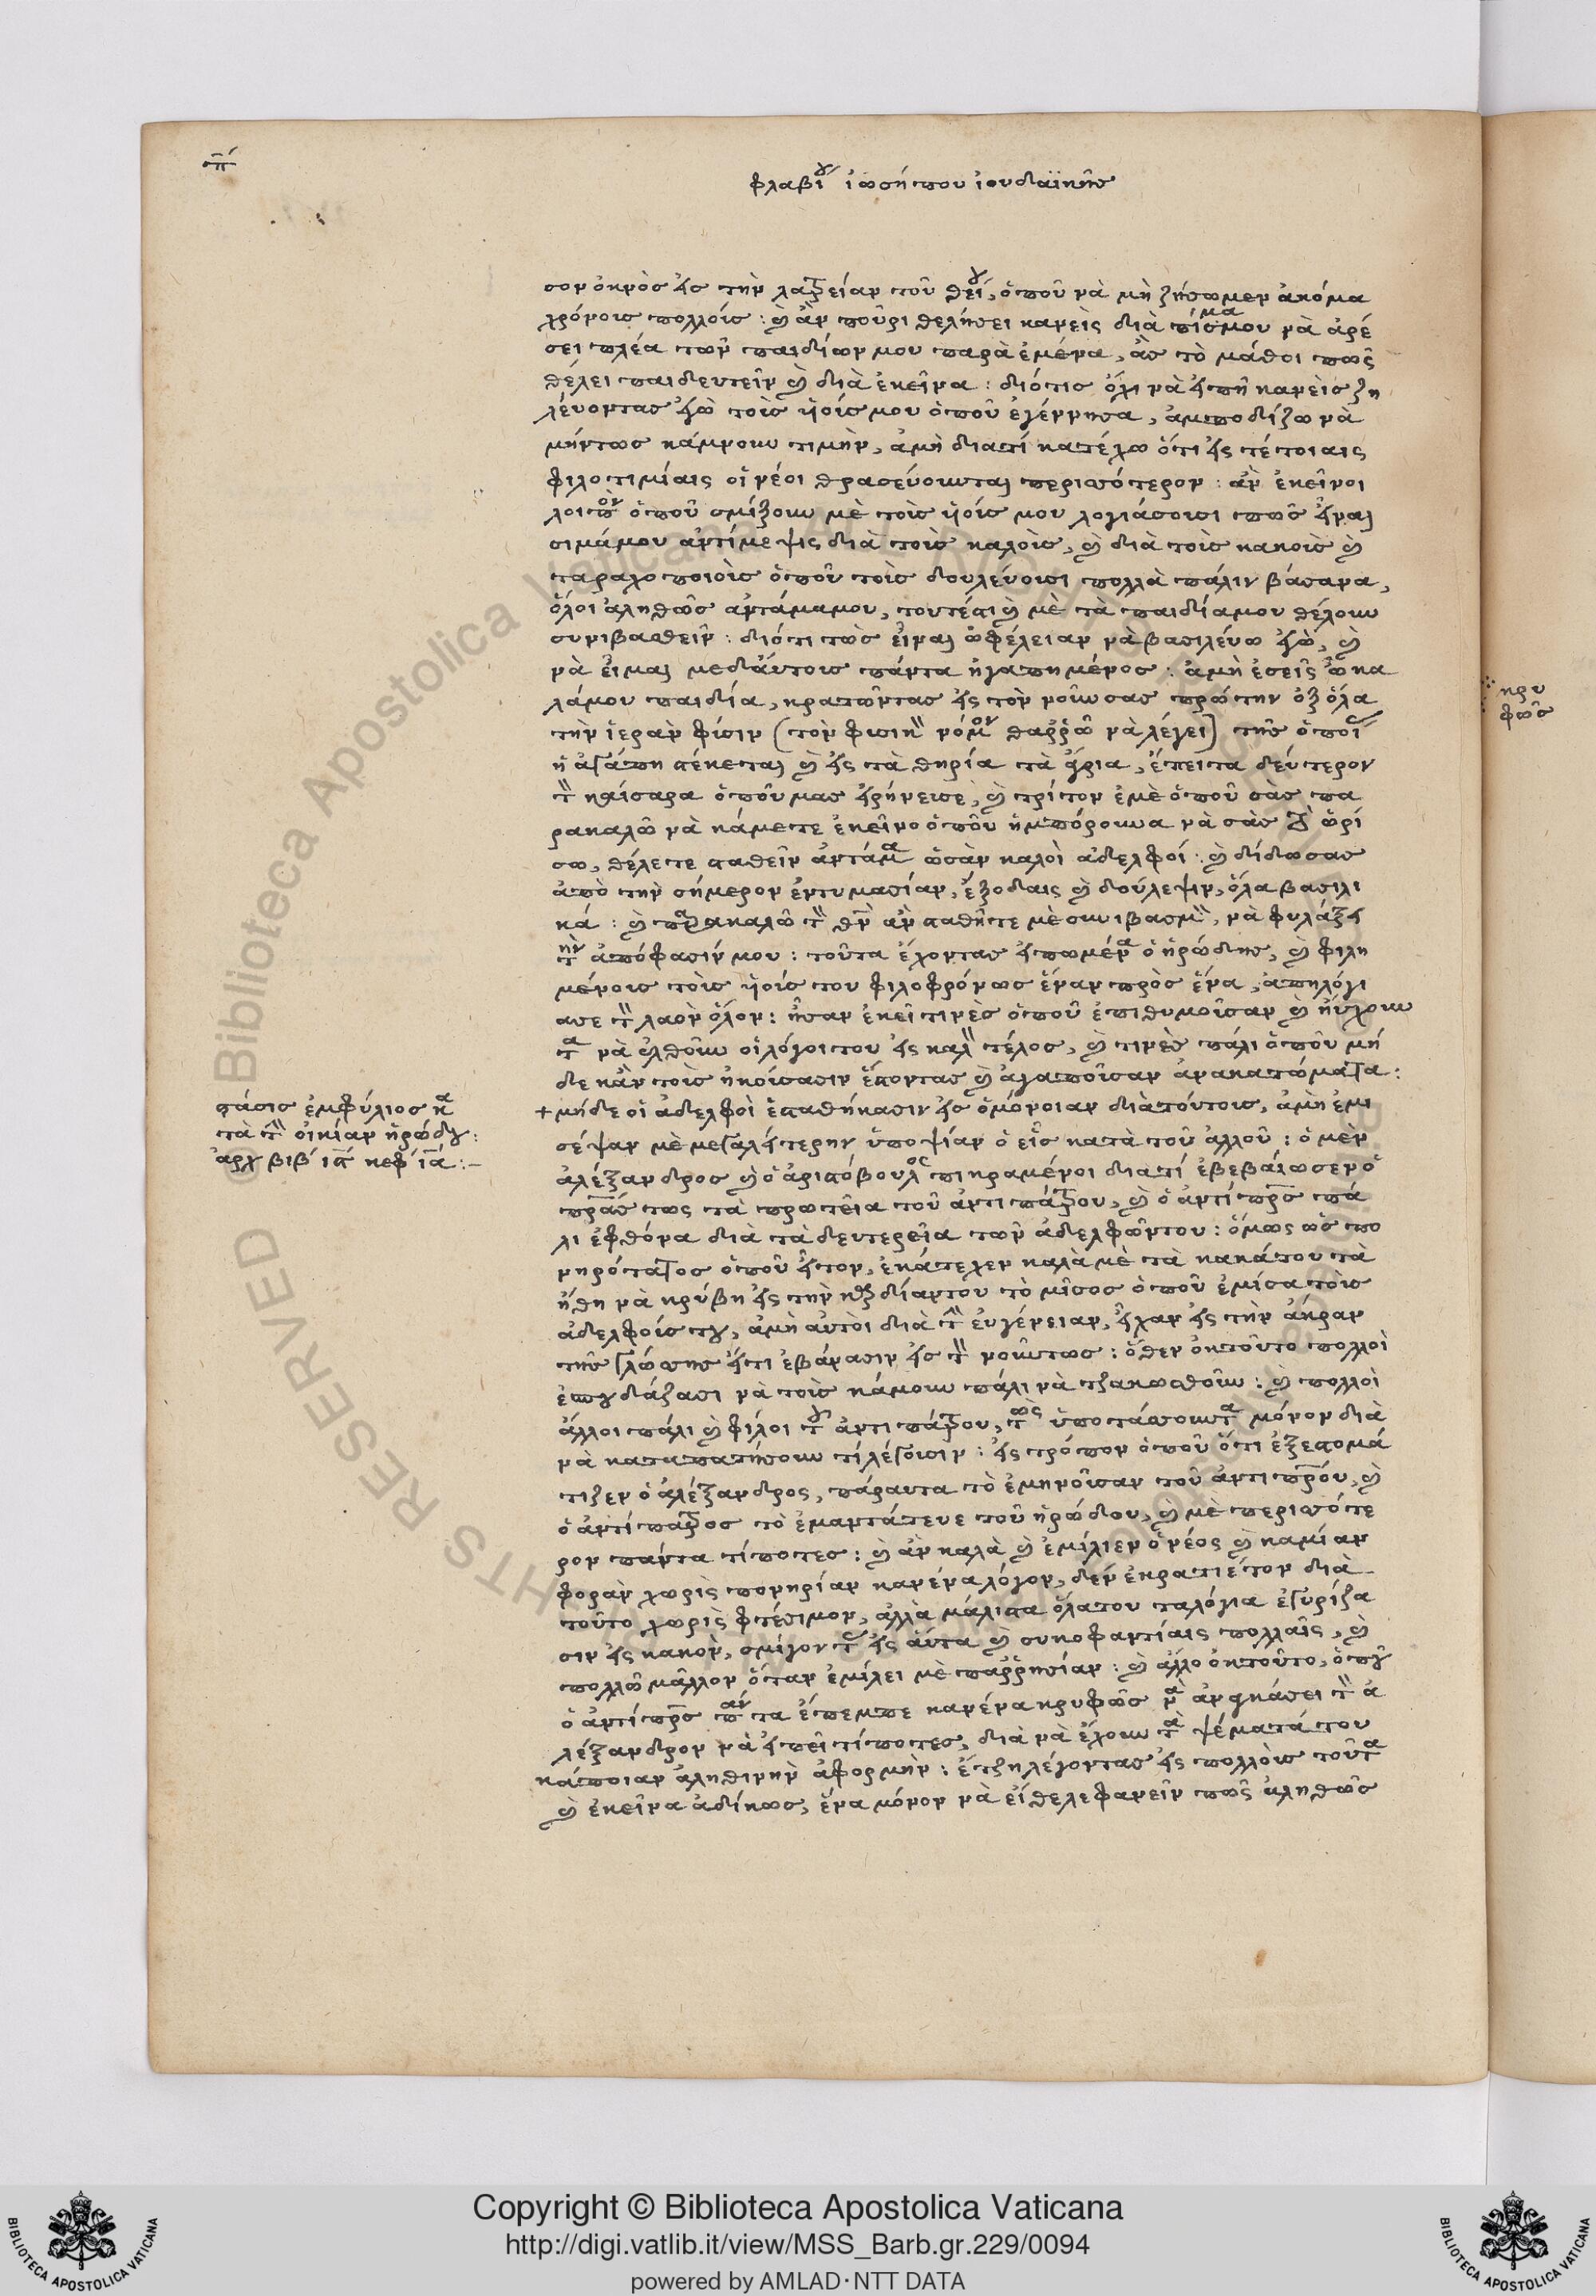 π
φλαβίου ἰωσήπου ἰουδαϊκῆς
σον ὀκνὸς εἰς τὴν λατρείαν τοῦ θείου, ὁποῦ νὰ μὴ ζήσωμεν ἀκόμα
χρόνοις πολλοίς : καὶ ἂν ποῦρι θελήσει κανεὶς διὰ πίσμα μου νὰ ἀρέ
σει πλέα τῶν παιδίων μου παρὰ ἐμένα, ἂς τὸ μάθοι πῶς
θέλει παιδευτεῖν καὶ διὰ ἐκεῖνα : διότις ὄχι νὰ εἰπῆ κανεὶς ζη
λέυοντας ἐγὼ τοὶς ὑοίς μου ὁποῦ ἐγέννησα, ἀμποδίζω νὰ
μήντως κάμνουν τιμὴν, ἀμὴ διατί κατέχω ὅτι εἰς τέτοιαις
φιλοτιμίαις οἱ νέοι θρασεύουνται περισότερον : ἂν ἐκεῖνοι
λοιπὸν ὁποῦ σμίξουν μὲ τοὶς ὑοίς μου λογιάσουσι πῶς εἶναι
σιμάμου ἀντίμεψις διὰ τοὶς καλοὶς, καὶ διὰ τοὶς κακοὶς καὶ
ταραχοποιοὶς ὁποῦ τοὶς δουλεύουσι πολλὰ πάλιν βάσανα,
ὅλοι ἀληθῶς ἀντάμαμου, τουτέστι καὶ μὲ τὰ παιδίαμου θέλουν
συνιβασθεῖν : διότι πῶς εἶναι ὠφέλειαν νὰ βασιλέυω ἐγὼ, καὶ
νὰ εἶμαι μεδἀύτοις πάντα ἠγαπημένος : ἀμὴ ἐσεῖς ὦ κα
λάμου παιδία, κρατῶντας εἰς τὸν νοῦν σας πρώτην ὀξ ὅλα
τὴν ἱερὰν φύσιν (τὸν φυσικὸν νόμον θαῤῥῶ νὰ λέγει) τῆς ὁποίας
ἡ ἀγάπη στέκεται καὶ εἰς τὰ θηρία τὰ ἄγρια, ἔπειτα δεύτερον
τὸν καίσαρα ὁποῦ μας εἰρήνευσε, καὶ τρίτον ἐμὲ ὁποῦ σᾶς πα
ρακαλῶ νὰ κάμετε ἐκεῖνο ὁποῦ ἠμπόρουνα νὰ σᾶς τὸ ὁρί
σω, θέλετε σταθεῖν ἀντάμα ὡσὰν καλοὶ ἀδελφοί : καὶ δίδω σας
ἀπὸ τὴν σήμερον ἐντυμασίαν, ἔξοδαις καὶ δούλεψιν, ὅλα βασιλι
κά : καὶ παρακαλῶ τὸν θεὸν ἂν σταθῆτε μὲ συνιβασμὸν, νὰ φυλάξει
τὴν ἀπόφασίν μου : τοῦτα ἔχοντας εἰπωμένα ὁ ἡρώδης, καὶ φιλη
μένοις τοὶς ὑοίς του φιλοφρόνως ἕναν πρὸς ἕνα, ἀπηλόγι
ασε τὸν λαὸν ὅλον : ἦσαν ἐκεῖ τινὲς ὁποῦ ἐπιθυμοῖσαν καὶ ηὔχουν
τα νὰ ἐλθοῦν οἱ λόγοι του εἰς καλὸν τέλος, καὶ τινὲς πάλι ὁποῦ μή
δε κἂν τοὶς ἠκούσασιν ἔστοντας καὶ ἀγαποῦσαν ἀνακατώματα :
+ μήδε οἱ ἀδελφοὶ ἐσταθήκασιν εἰς ὁμόνοιαν διὰ τόντοις, ἀμὴ ἐμι
σέψαν μὲ μεγαλήτερην ὑποψίαν ὁ εἷς κατὰ τοῦ ἀλλοῦ : ὁ μὲν
ἀλέξανδρος καὶ ὁ ἀριστόβουλος πικραμένοι διατί ἐβεβάιωσεν ὁ
πατέρας τως τὰ πρωτεῖα τοῦ ἀντιπάτρου, καὶ ὁ ἀντίπατρος πά
λι ἐφθόνα διὰ τὰ δευτερεῖα τῶν ἀδελφῶντου : ὅμως ὡς πο
νηρότατος ὁποῦ ἦτον, ἐκάτεχεν καλὰ μὲ τὰ κακάτου τὰ
ἤθη νὰ κρύβη εἰς τὴν καρδίαντου τὸ μῖσος ὁποῦ ἐμίσα τοὶς
ἀδελφοίς του, ἀμὴ αὐτοὶ διὰ τὴν ἐυγένειαν, εἶχαν εἰς τὴν ἄκραν
τῆς γλώσσης ὅτι ἐβάνασιν εἰς τὸν νοῦντως : ὅθεν ὀκτοῦτο πολλοὶ
ἐσπουδάζασι νὰ τοὶς κάμουν πάλι νὰ τζακωθοῦν : καὶ πολλοὶ
ἄλλοι πάλι καὶ φίλοι τοῦ ἀντιπάτρου, τῶς ὑποτάσσουντα μόνον διὰ
νὰ καταπατήσουν τί λέγουσιν : εἰς τρόπον ὁποῦ ὅτι ἐξεστομά
τιζεν ὁ ἀλέξανδρος, πάραυτα τὸ ἐμηνοῦσαν τοῦ ἀντιπάτρου, καὶ
ὁ ἀντίπατρος τὸ ἐμαντάτευε τοῦ ἡρώδου, καὶ μὲ περισότε
ρον πάντα τίποτες : καὶ ἂν καλὰ καὶ ἐμίλιεν ὁ νέος καὶ καμίαν
φορὰν χωρὶς πονηρίαν κανένα λόγον, δὲν ἐκρατιέτον διὰ
τοῦτο χωρὶς φτέσιμον, ἀλλὰ μάλιστα ὅλατου ταλόγια ἐγυρίζα
σιν εἰς κακὸν, σμίγοντας εἰς ἀύτα καὶ συκοφαντίαις πολλαῖς, καὶ
πολλῶ μᾶλλον ὅταν ἐμίλει μὲ παῤῥησίαν : καὶ ἄλλο ὀκτοῦτο, ὁποῦ
ὁ ἀντίπατρος πάντα ἔπεμπε κανένα κρυφῶς νὰ ἀναγκάσει τὸν ἀ
λέξανδρον νὰ εἰπεῖ τίποτες, διὰ νὰ ἔχουν τὰ ψέματά του
κάποιαν ἀληθινὴν ἀφορμὴν : ἔτζη λέγοντας εἰς πολλοὶς τοῦτα
καὶ ἐκεῖνα ἀδίκως, ἕνα μόνον νὰ εἴθελε φανεῖν πῶς ἀληθῶς
στάσις ἐμφύλιος κα
τὰ τὴν οἰκίαν ἡρώδου :
ἀρχ βιβ ιϛ κεφ ια :-
κρυ
φῶς
Copyright © Biblioteca Apostolica Vaticana
http://digi.vatlib.it/view/MSS_Barb.gr.229/0094
powered by AMLAD·NTT DATA
BIBLIOTECA APOSTOLICA VATICANA
BIBLIOTECA APOSTOLICA VATICANA
© Biblioteca Apostolica Vaticana
RIGHTS RESERVED